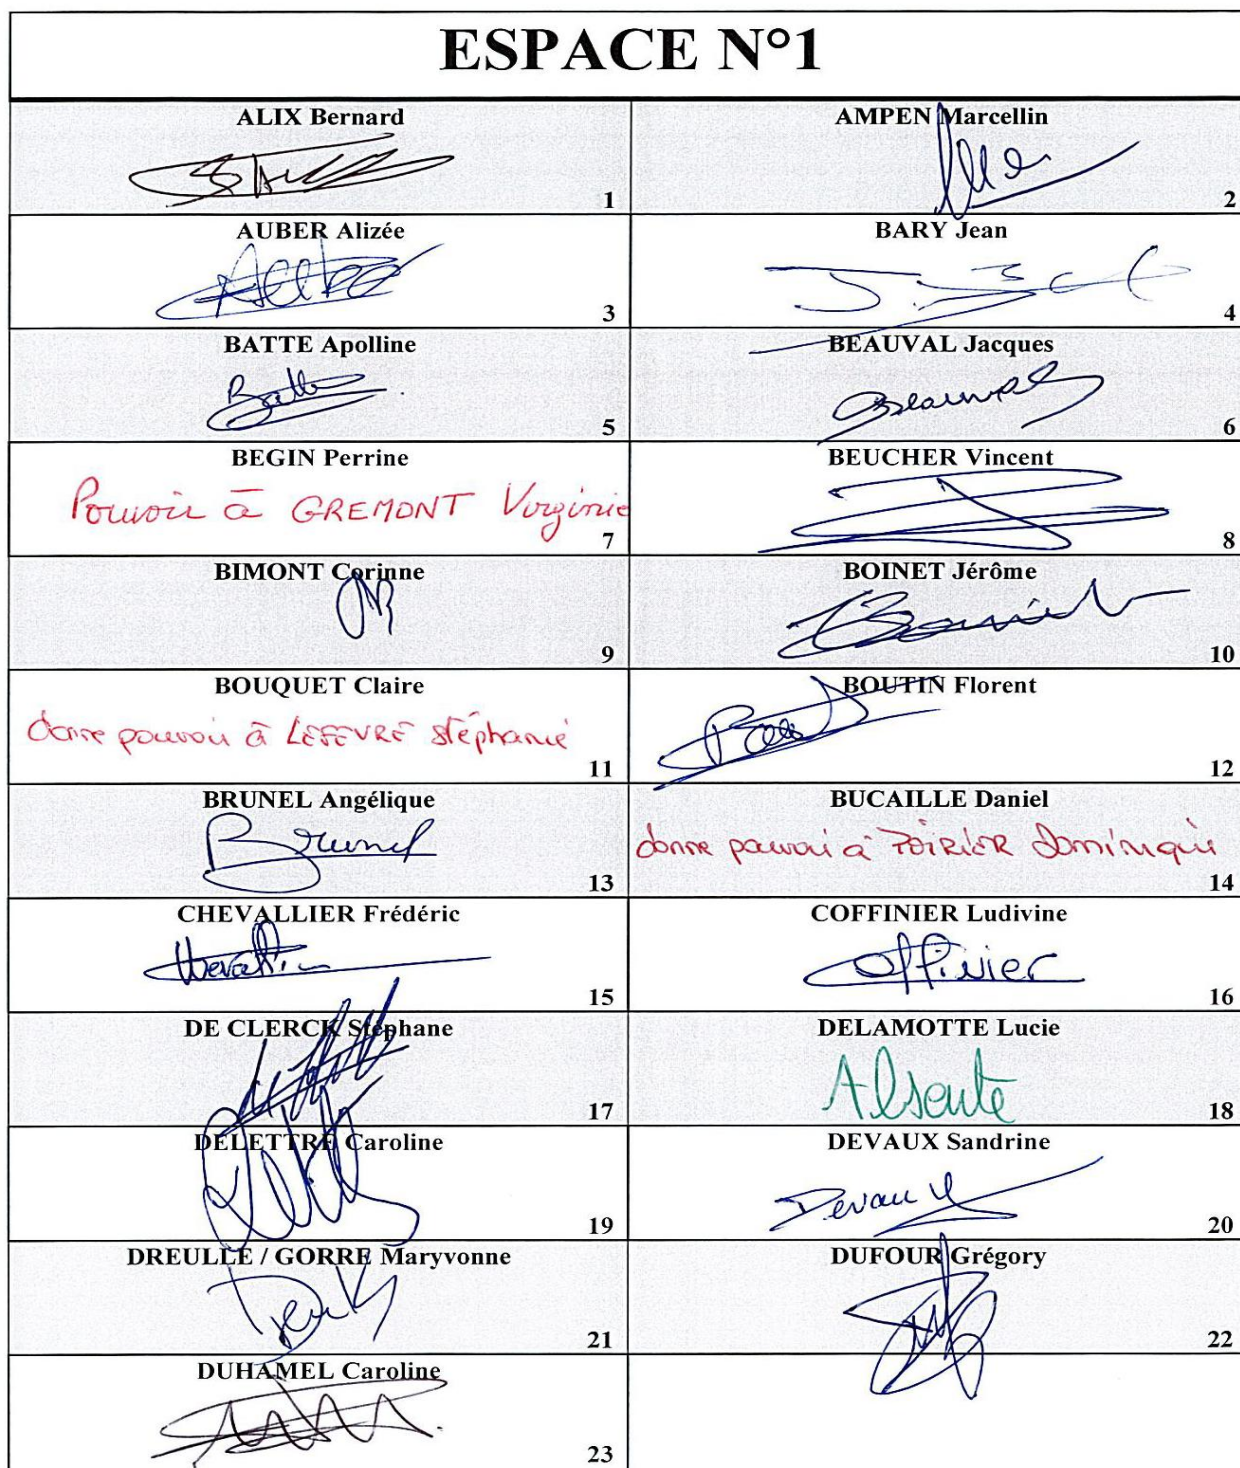 ESPACE N°1
ALIX Bernard
1
AMPEN Marcellin
2
AUBER Alizée
3
BARY Jean
4
BATTE Apolline
Batte
5
BEAUVAL Jacques
Beauval
6
BEGIN Perrine
Pouvoir à GREMONT Virginie
7
BEUCHER Vincent
8
BIMONT Corinne
9
BOINET Jérôme
10
BOUQUET Claire
donne pouvoir à LEFEVRE Stéphanie
11
BOUTIN Florent
12
BRUNEL Angélique
Brunel
13
BUCAILLE Daniel
donne pouvoir à POIRIER Dominique
14
CHEVALLIER Frédéric
15
COFFINIER Ludivine
Coffinier
16
DE CLERCK Stéphane
17
DELAMOTTE Lucie
Absente
18
DELETTRE Caroline
19
DEVAUX Sandrine
Devaux
20
DREULLE / GORRE Maryvonne
21
DUFOUR Grégory
22
DUHAMEL Caroline
23